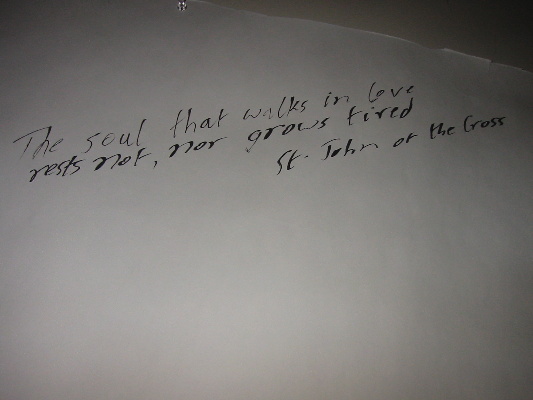 The soul that walks in love
rests not, nor grows tired
St. John of the Cross